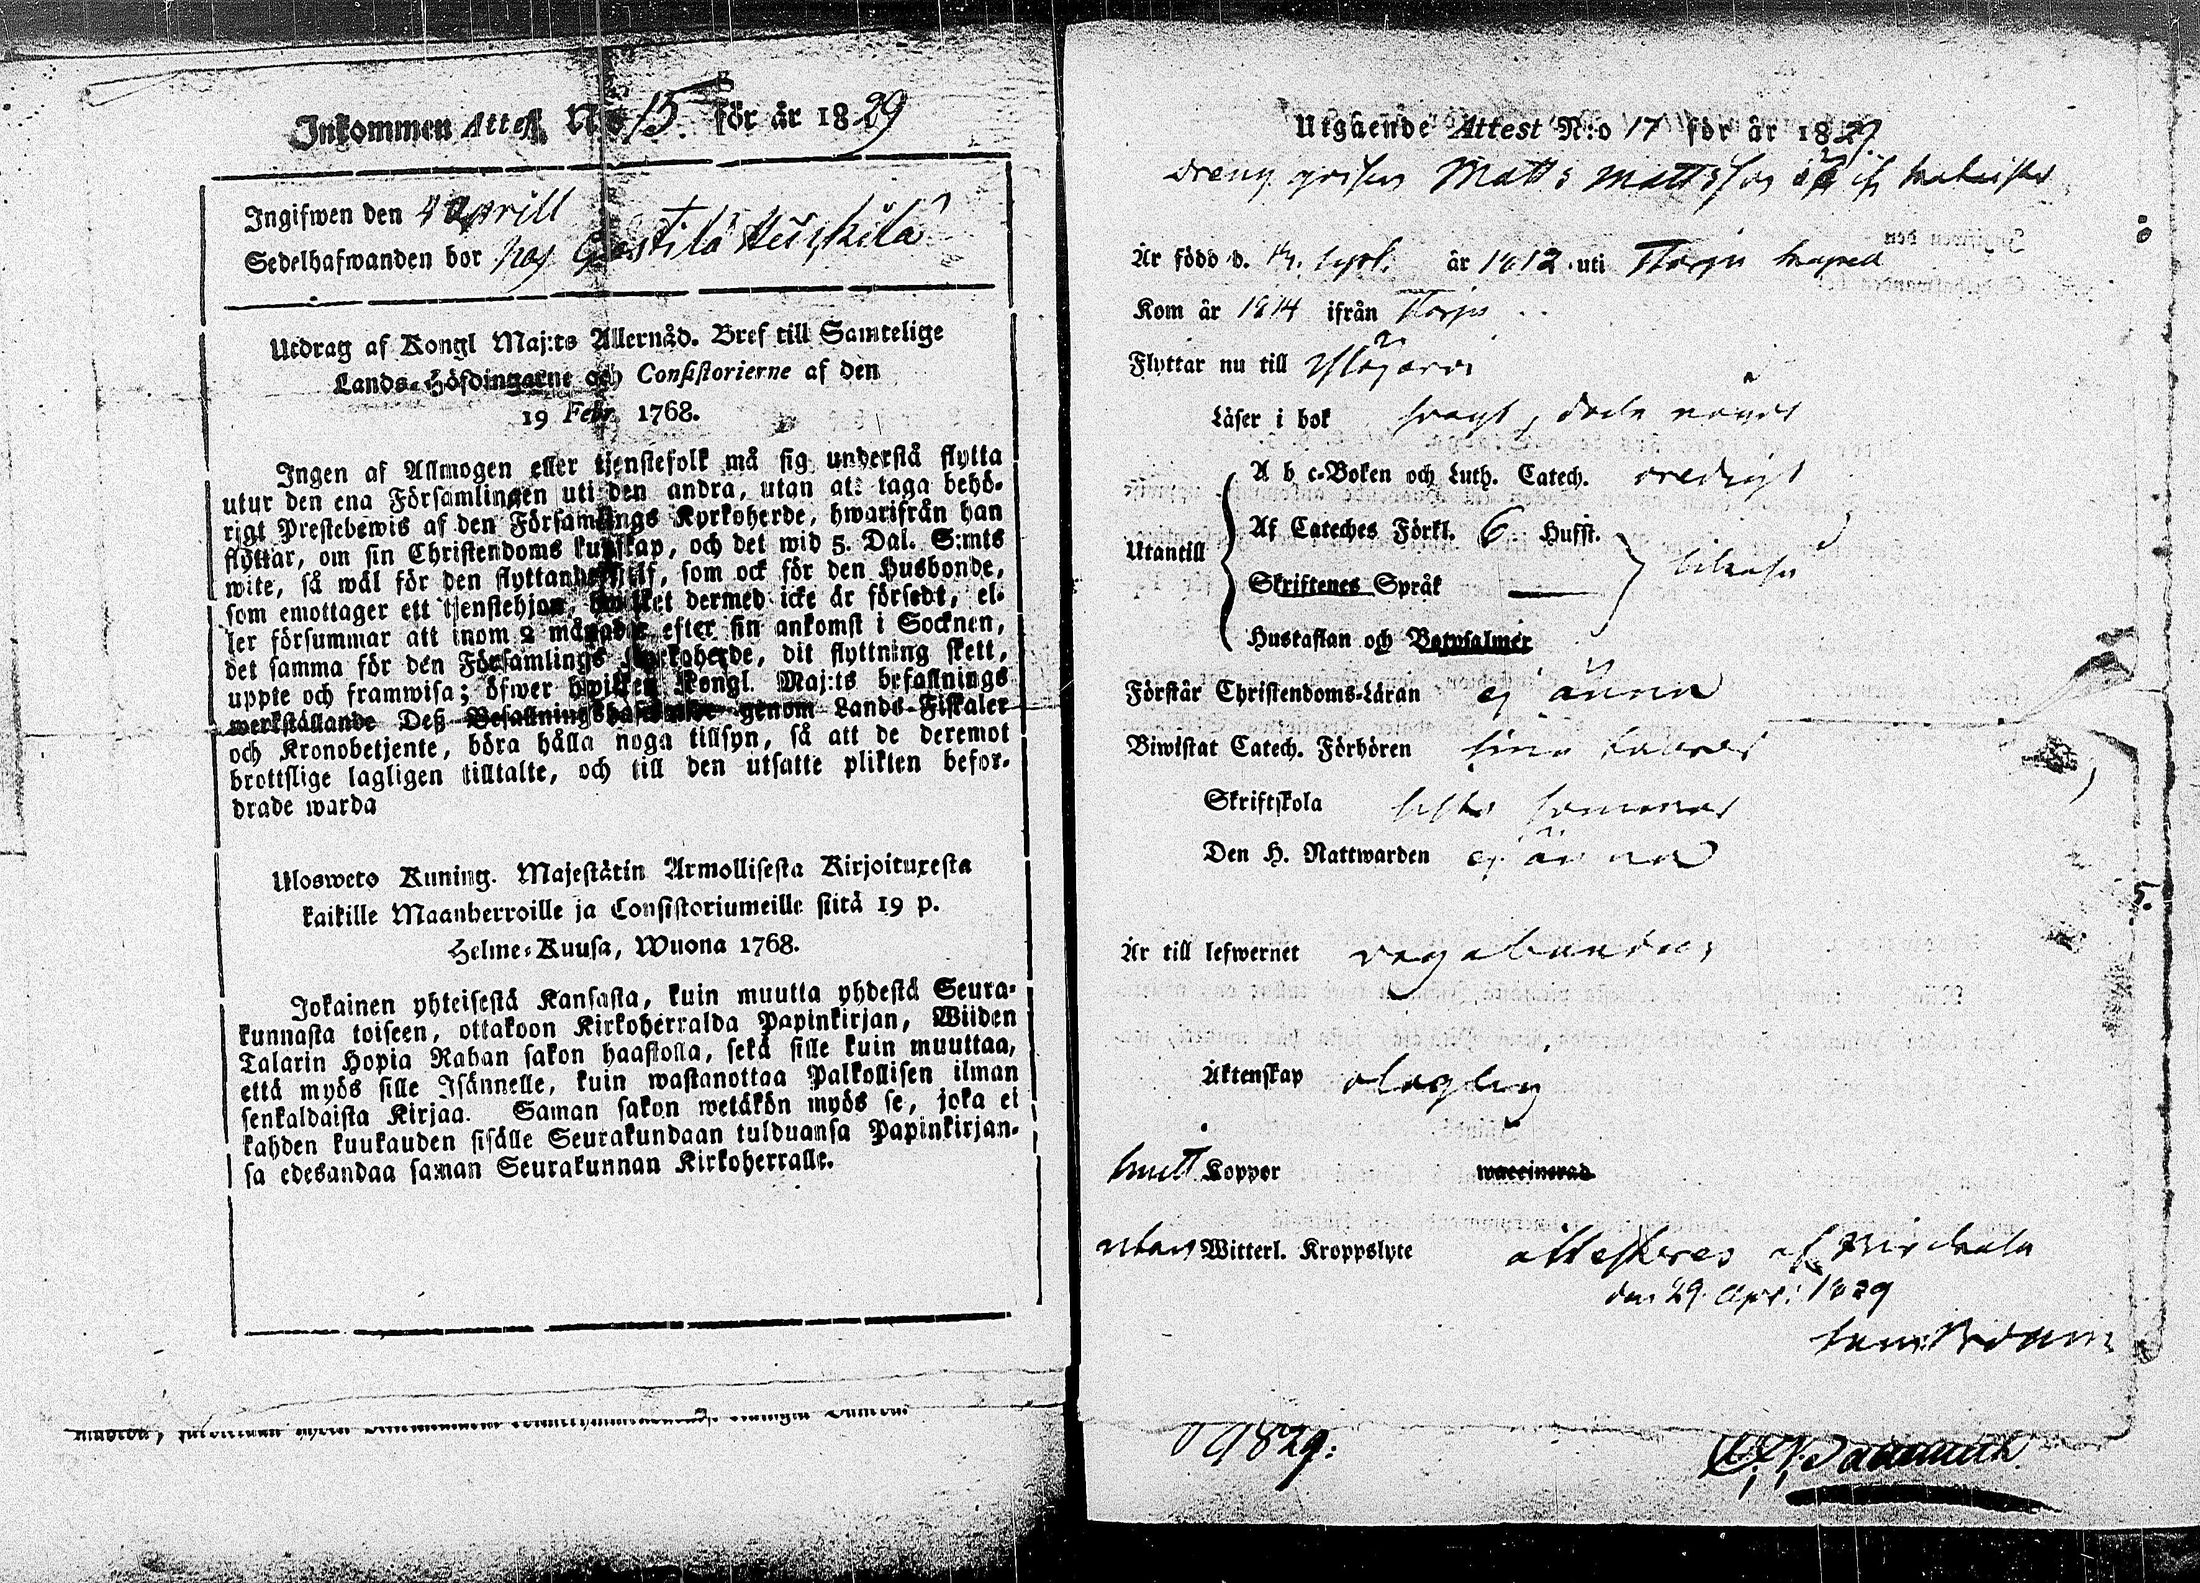 Inkommen Attest No 15. för år 1829
Ingifwen den 4 Aprill
Sedelhafwanden bor
Utdrag af Kongl Maj:ts Allernåd. Bref till Samtelige
Lands-Höfdingarne och Consistorierne af den
19 Febr. 1768.
Ingen af Allmogen eller tjenstefolk må sig understå flytta
utur den ena Församlingen uti den andra, utan att taga behö-
rigt Prestebewis af den Församlings Kyrkoherde, hwarifrån han
flyttar, om sin Christendoms kunskap, och det wid 5. Dal. S:mts
wite, så wäl för den flyttande sjelf, som ock för den Husbonde,
som emottager ett tjenstehjon, hwilket dermed icke är försedt, el-
ler försummar att inom 2 månader efter sin ankomst i Socknen,
det samma för den Församlings Kyrkoherde, dit flyttning skett,
uppte och framwisa; öfwer hwilken Kongl. Maj:ts befallnings
werkställande Deß Befallningshafwande genom Lands-Fiskaler
och Kronobetjente, böra hålla noga tillsyn, så att de deremot
brottslige lagligen tilltalte, och till den utsatte plikten befor-
drade warda
Ulosweto Kuning. Majestätin Armollisesta Kirjoituxesta
kaikille Maanherroille ja Consistoriumeille siitä 19 p.
Helme-Kuusa, Wuona 1768.
Jokainen yhteisestä Kansasta, kuin muutta yhdestä Seura-
kunnasta toiseen, ottakoon Kirkoherralda Papinkirjan, Wiiden
Talarin Hopia Rahan sakon haastolla, sekä sille kuin muuttaa,
että myös sille Isännelle, kuin wastanottaa Palkollisen ilman
senkaldaista Kirjaa. Saman sakon wetäkön myös se, joka ei
kahden kuukauden sisälle Seurakundaan tulduansa Papinkirjan-
sa edesandaa saman Seurakunnan Kirkoherralle.
Utgående Attest N:o 17 för år 1829.
Dreng Matts Mattsson
Är född d. 14. år 1812 uti Storju
Kom år 1814 ifrån
Flyttar nu till Ylöjärvi
Läser i bok swagt,
Utantill
A b c-Boken och Luth. Catech.
Af Cateches Förkl. 6 Hufst.
Skriftenes Språk
Hustaflan och Botpsalmer
Förstår Christendoms-Läran ej ännu
Biwistat Catech. Förhören
Skriftskola sista sommar
Den H. Nattwarden ej ännu
Är till lefwernet vagabundus
Äktenskap oledig
haft Koppor waccinerad
utan Witterl. Kroppslyte attesteres af Birckala
den 29. Apr: 1829
1829.